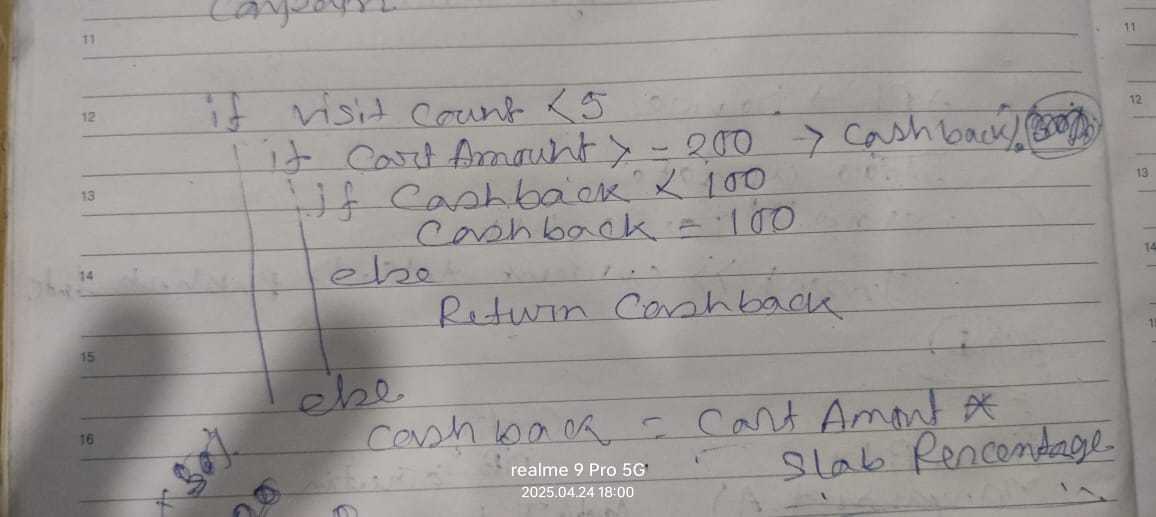 11
11
12
if visit Count < 5
12
if Cart Amount > = 200 → Cashback
13
if Cashback < 100
13
Cashback = 100
14
else
14
Return Cashback
15
else
16
Cashback = Cart Amont *
Slab Percentage
realme 9 Pro 5G
2025.04.24 18:00